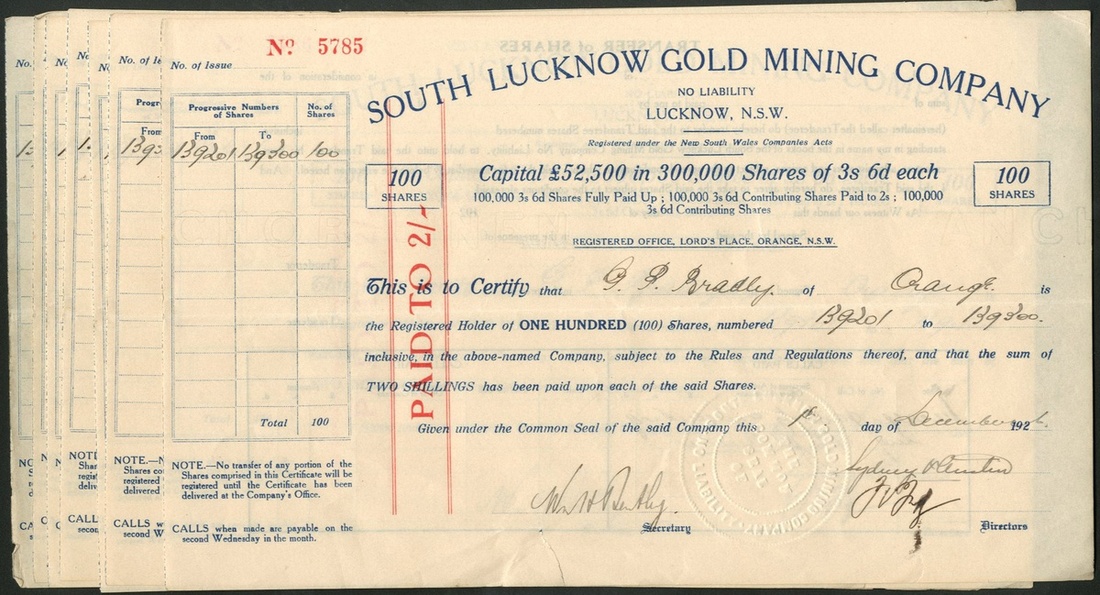 No. of Issue
Nº 5785
Progressive Numbers of Shares
No. of Shares
From To
B9201 B9300 100
Total 100
NOTE.—No transfer of any portion of the
Shares comprised in this Certificate will be
registered until the Certificate has been
delivered at the Company's Office.
CALLS when made are payable on the
second Wednesday in the month.
PAID TO 2/-
SOUTH LUCKNOW GOLD MINING COMPANY
NO LIABILITY
LUCKNOW, N.S.W.
Registered under the New South Wales Companies Acts
100 SHARES
Capital £52,500 in 300,000 Shares of 3s 6d each
100 SHARES
100,000 3s 6d Shares Fully Paid Up ; 100,000 3s 6d Contributing Shares Paid to 2s ; 100,000
3s 6d Contributing Shares
REGISTERED OFFICE, LORD'S PLACE, ORANGE, N.S.W.
This is to Certify that G. P. Bradly. of Orange is
the Registered Holder of ONE HUNDRED (100) Shares, numbered B9201 to B9300.
inclusive, in the above-named Company, subject to the Rules and Regulations thereof, and that the sum of
TWO SHILLINGS has been paid upon each of the said Shares.
Given under the Common Seal of the said Company this 1st day of December 192
Secretary
Directors